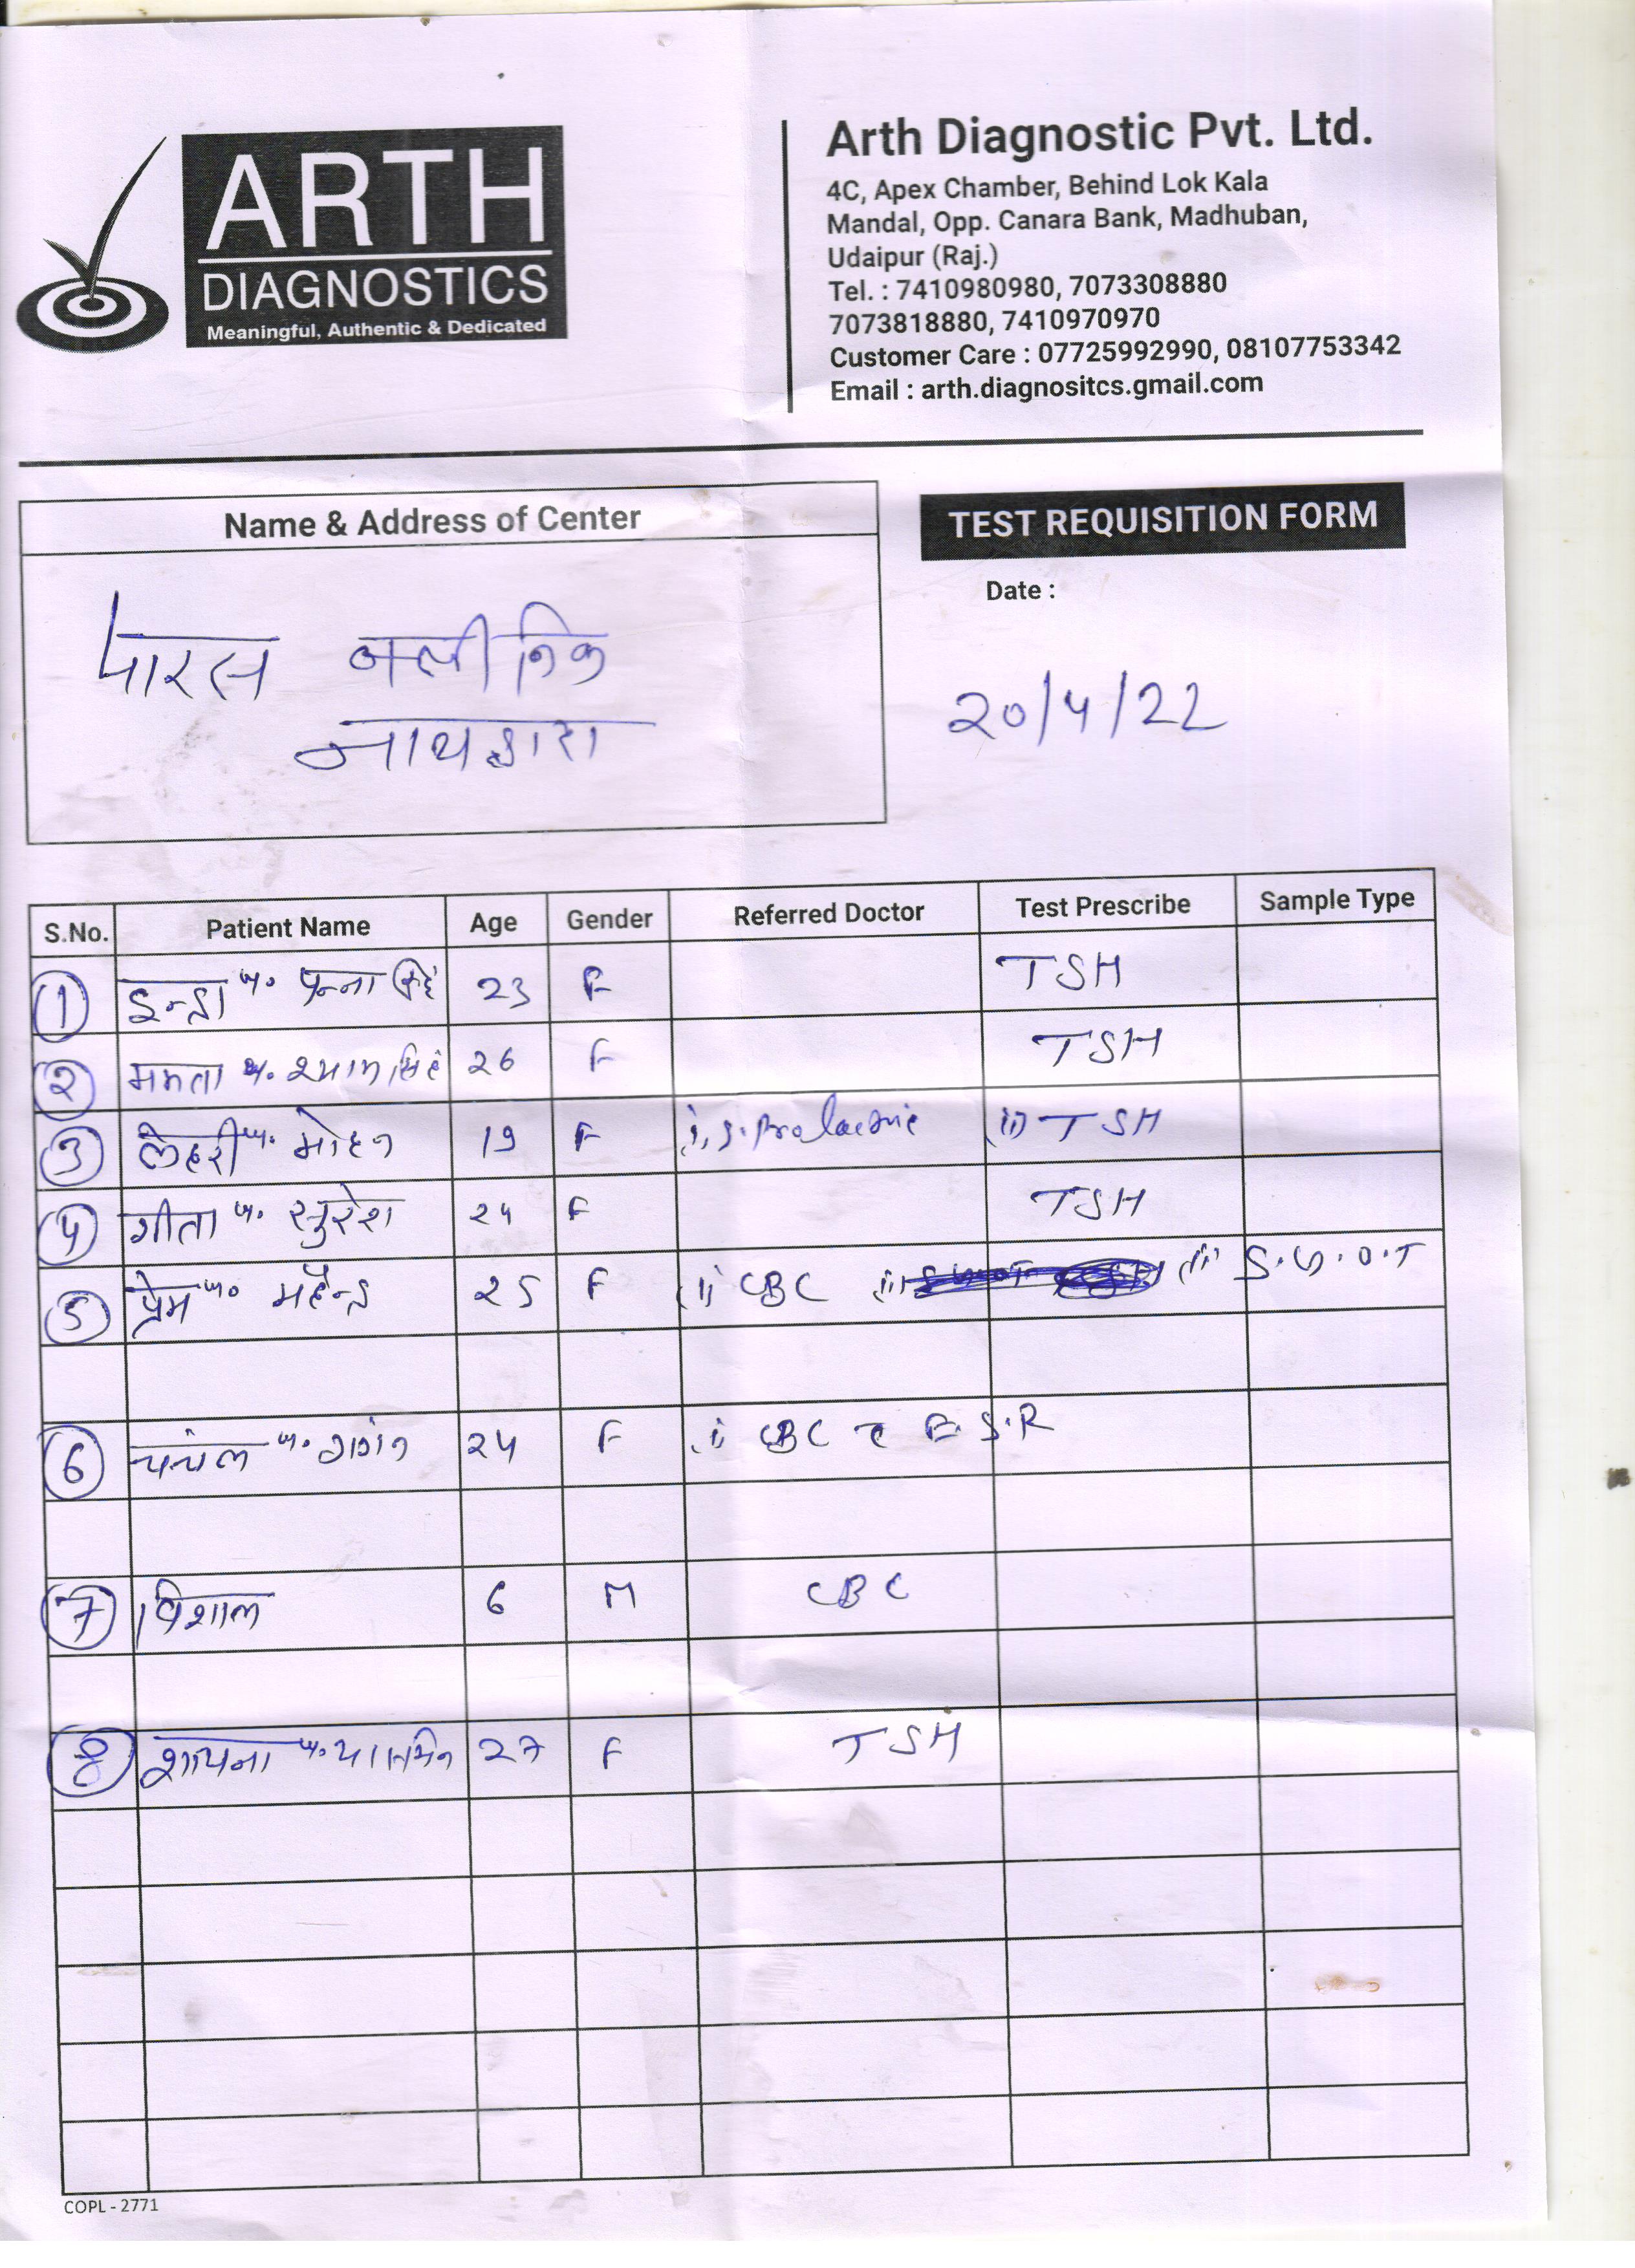 ARTH
DIAGNOSTICS
Meaningful, Authentic & Dedicated
Arth Diagnostic Pvt. Ltd.
4C, Apex Chamber, Behind Lok Kala
Mandal, Opp. Canara Bank, Madhuban,
Udaipur (Raj.)
Tel. : 7410980980, 7073308880
7073818880, 7410970970
Customer Care : 07725992990, 08107753342
Email : arth.diagnositcs.gmail.com
Name & Address of Center
पारस क्लीनिक
नाथद्वारा
TEST REQUISITION FORM
Date :
20/4/22
S.No. Patient Name Age Gender Referred Doctor Test Prescribe Sample Type
1 इन्द्रा प. पन्ना सिंह 23 F TSH
2 ममता प. श्याम सिंह 26 F TSH
3 लेहरी प. मोहन 19 F (i) S. Prolactine (ii) TSH
4 गीता प. सुरेश 24 F TSH
5 प्रेम प. महेन्द्र 25 F (i) CBC (ii) S.G.O.T
6 चंचल प. 24 F (i) CBC E.S.R
7 विशाल 6 M CBC
8 शायना प. 27 F TSH
COPL - 2771